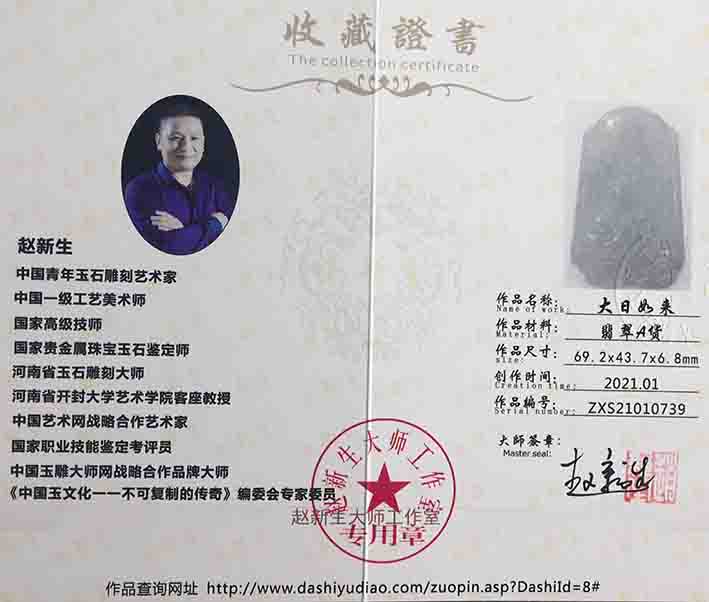 收藏證書
The collection certificate
赵新生
中国青年玉石雕刻艺术家
中国一级工艺美术师
国家高级技师
国家贵金属珠宝玉石鉴定师
河南省玉石雕刻大师
河南省开封大学艺术学院客座教授
中国艺术网战略合作艺术家
国家职业技能鉴定考评员
中国玉雕大师网战略合作品牌大师
《中国玉文化一一不可复制的传奇》编委会专家委员
赵新生大师工作室
作品名称: 大日如来
Name of work:
作品材料: 翡翠A货
Material:
作品尺寸: 69.2x43.7x6.8mm
size:
创作时间: 2021.01
Creation time:
作品编号: ZXS21010739
Serial number:
大師签章:
Master seal:
赵新生
赵新生大师工作室
专用章
作品查询网址 http://www.dashiyudiao.com/zuopin.asp?DashiId=8#